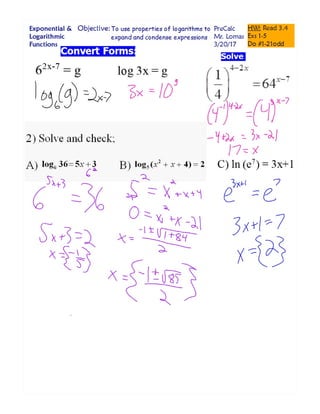 Exponential & Logarithmic Functions
Objective: To use properties of logarithms to expand and condense expressions
PreCalc
Mr. Lomas
3/20/17
HW: Read 3.4
Do #1-21odd
Convert Forms:
Solve
6^(2x-7) = g
log 3x = g
(1/4)^(4-2x) = 64^(x-7)
log_6(g) = 2x-7
3x = 10^g
(4^-1)^(4-2x) = (4^3)^(x-7)
-4+2x = 3x-21
17 = x
2) Solve and check;
A) log_6 36 = 5x + 3
B) log_5 (x² + x + 4) = 2
C) ln (e^7) = 3x+1
6^(5x+3) = 36
6²
5x+3 = 2
x = {-1/5}
5² = x² + x + 4
0 = x² + x - 21
x = (-1 ± √(1+84))/2
x = {(-1 ± √85)/2}
e^(3x+1) = e^7
3x+1 = 7
x = {2}